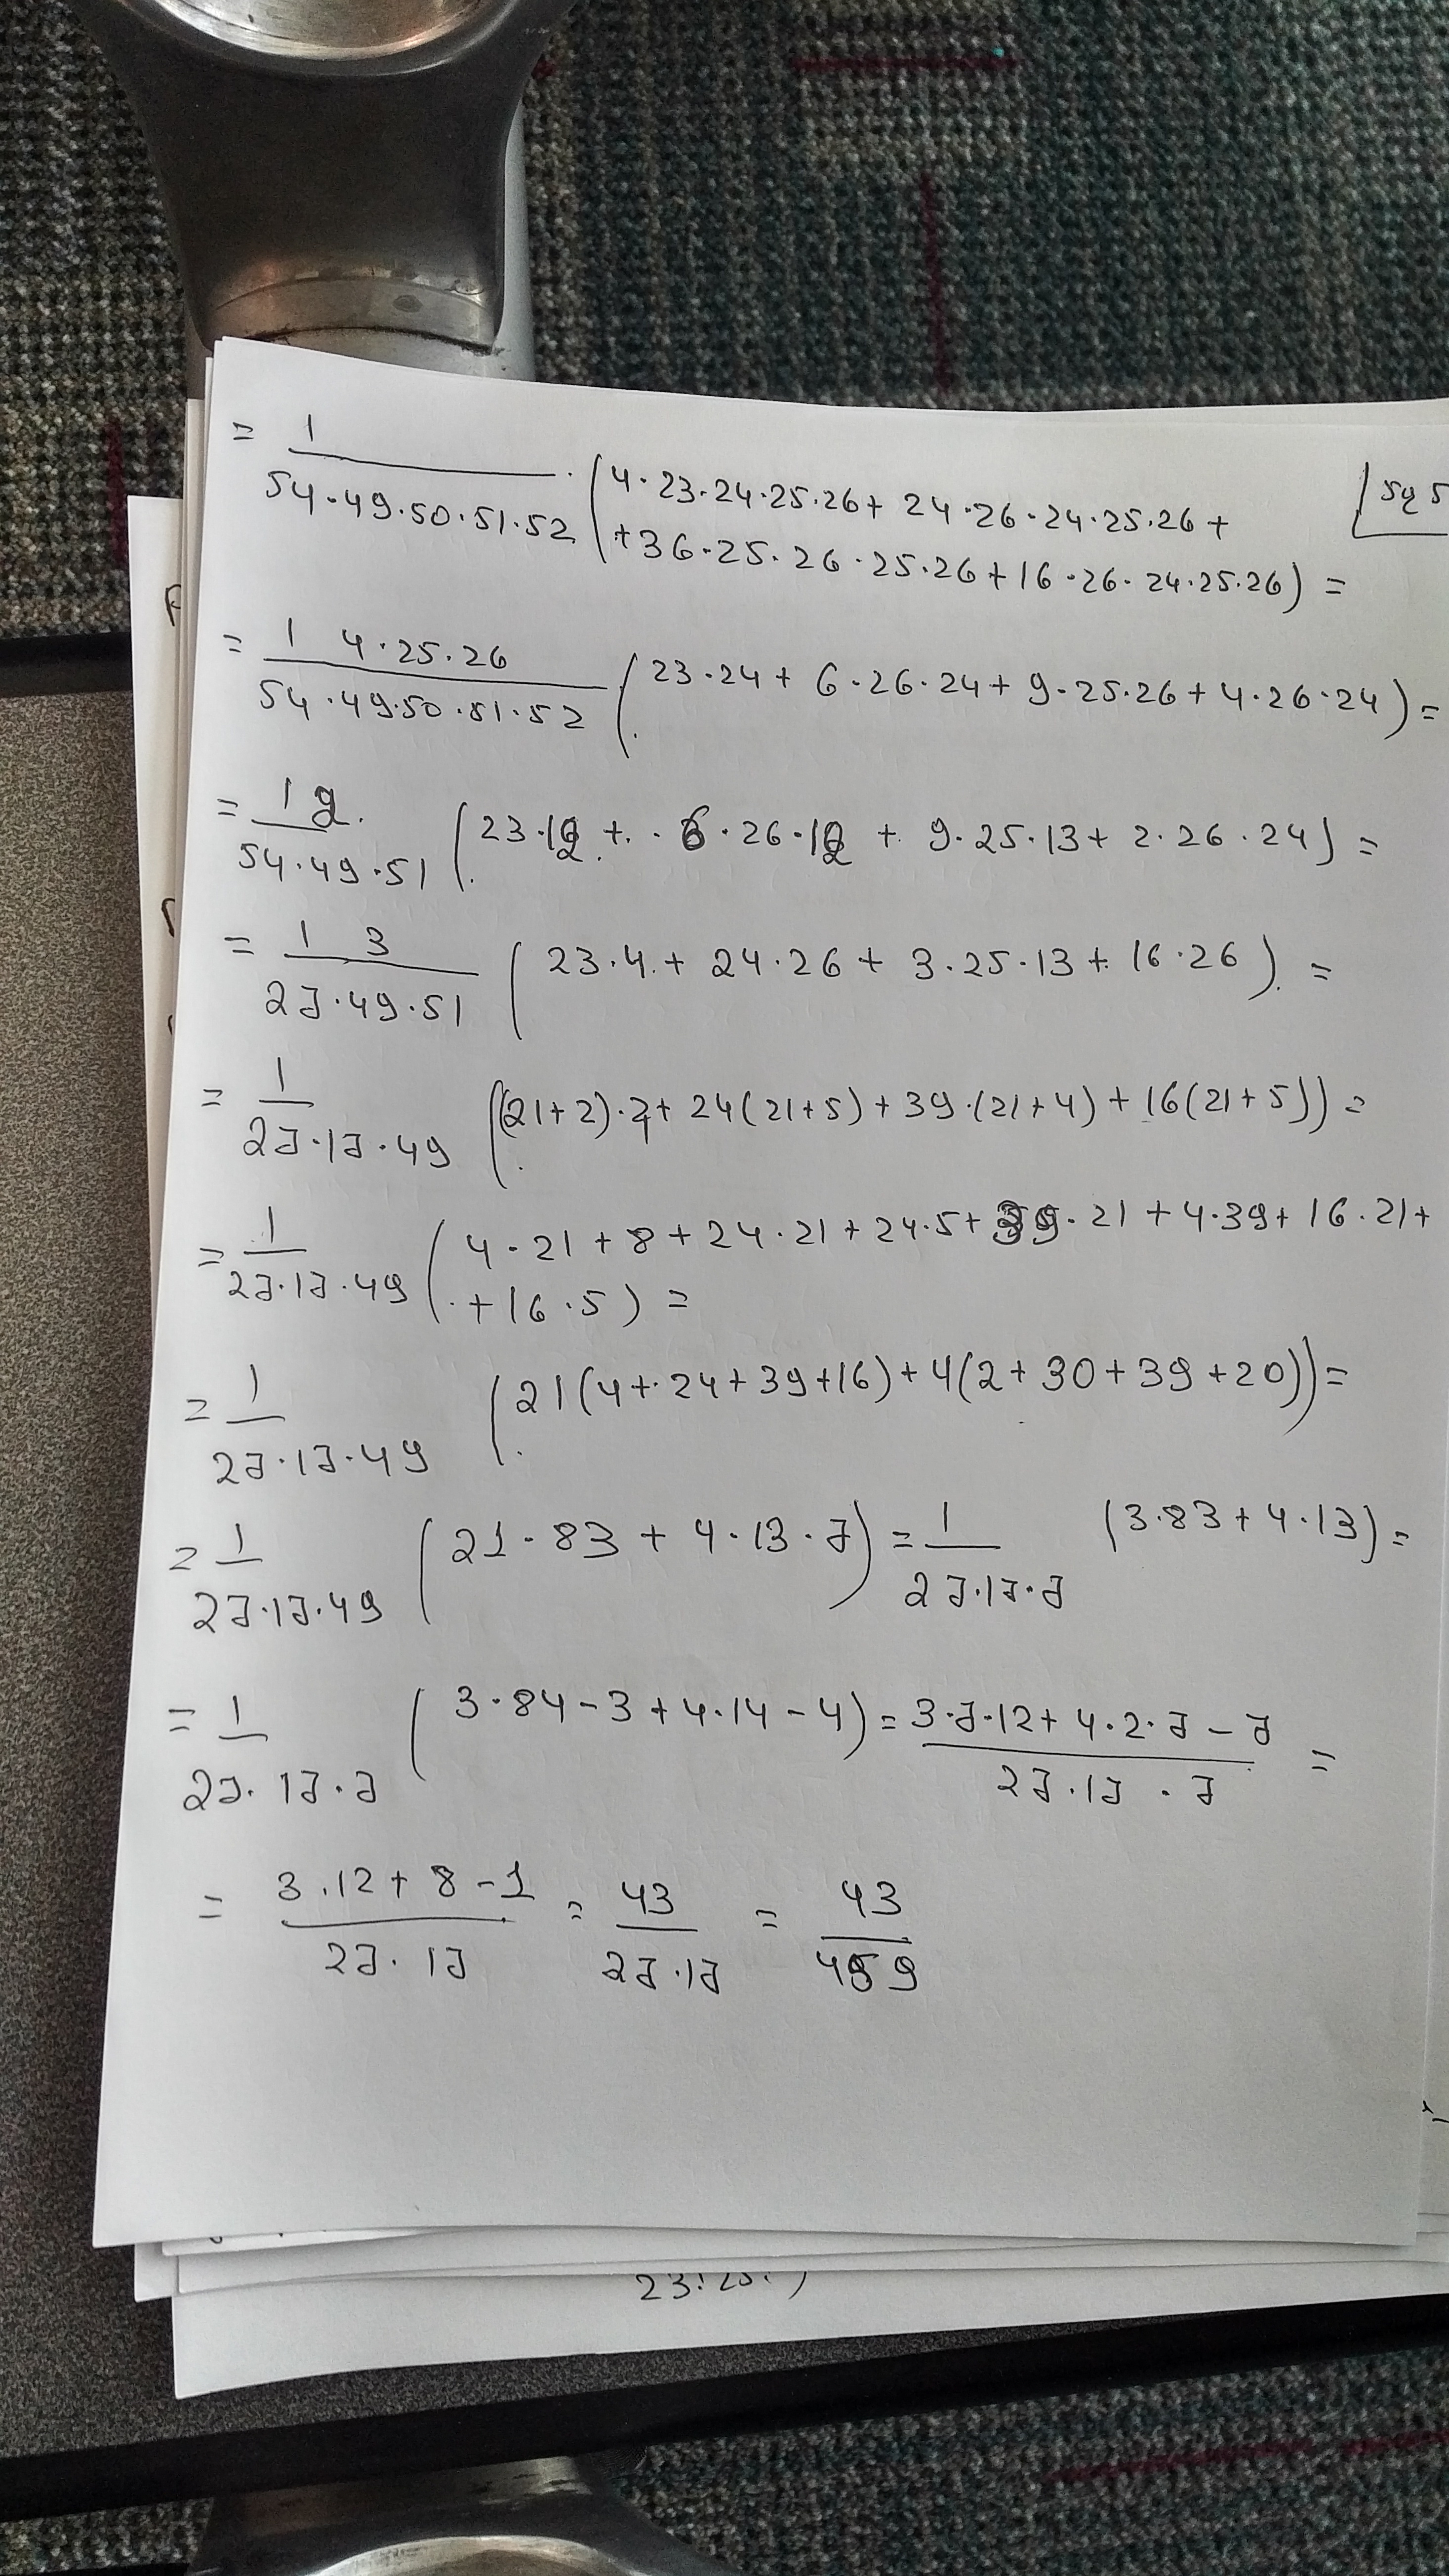 = 1 / 54·49·50·51·52 · (4·23·24·25·26 + 24·26·24·25·26 +
+ 36·25·26·25·26 + 16·26·24·25·26) =
= 1 4·25·26 / 54·49·50·51·52 (23·24 + 6·26·24 + 9·25·26 + 4·26·24) =
= 1 2 / 54·49·51 (23·12 + 6·26·12 + 9·25·13 + 2·26·24) =
= 1 3 / 27·49·51 (23·4 + 24·26 + 3·25·13 + 16·26) =
= 1 / 27·17·49 ((21+2)·4 + 24(21+5) + 39·(21+4) + 16(21+5)) =
= 1 / 27·17·49 (4·21 + 8 + 24·21 + 24·5 + 39·21 + 4·39 + 16·21 +
+ 16·5) =
= 1 / 27·17·49 (21(4+24+39+16) + 4(2+30+39+20)) =
= 1 / 27·17·49 (21·83 + 4·13·7) = 1 / 27·17·7 (3·83 + 4·13) =
= 1 / 27·17·7 (3·84 - 3 + 4·14 - 4) = 3·7·12 + 4·2·7 - 7 / 27·17·7 =
= 3·12 + 8 - 1 / 27·17 = 43 / 27·17 = 43 / 459